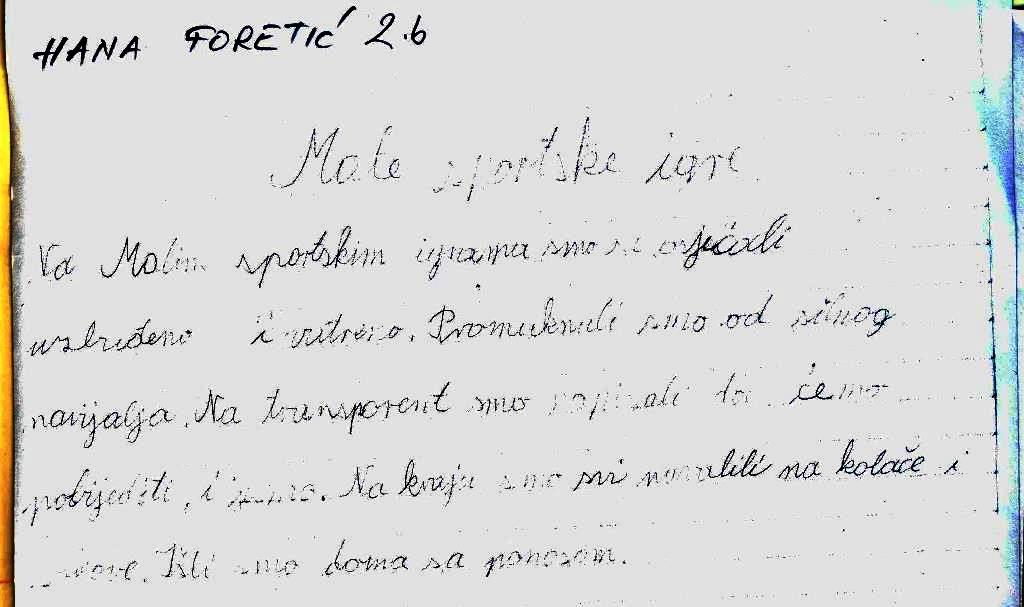 HANA FORETIĆ 2.b
Male sportske igre
Na Malim sportskim igrama smo se osjećali
uzbuđeno i vatreno. Promuknuli smo od silnog
navijalja. Na transparent smo napisali da ćemo
pobijediti, i jesmo. Na kraju smo svi navalili na kolače i
Išli smo doma sa ponosom.